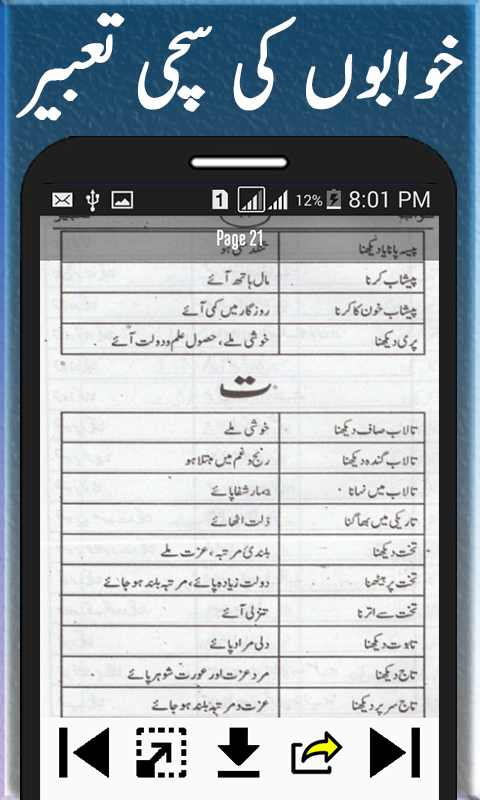 خوابوں کی سچی تعبیر
1 12% 8:01 PM
Page 21
پیسہ پانا یا دیکھنا
پیشاب کرنا مال ہاتھ آئے
پیشاب خون کا کرنا روزگار میں کمی آئے
پری دیکھنا خوشی ملے، حصول علم و دولت آئے
ت
تالاب صاف دیکھنا خوشی ملے
تالاب گندہ دیکھنا رنج و غم میں مبتلا ہو
تالاب میں نہانا بیمار شفا پائے
تاریکی میں بھاگنا ذلت اٹھائے
تخت دیکھنا بلندی مرتبہ، عزت ملے
تخت پر بیٹھنا دولت زیادہ پائے، مرتبہ بلند ہو جائے
تخت سے اترنا تنزلی آئے
تابوت دیکھنا دلی مراد پائے
تاج دیکھنا مرد عزت اور عورت شوہر پائے
تاج سر پر دیکھنا عزت و مرتبہ بلند ہو جائے